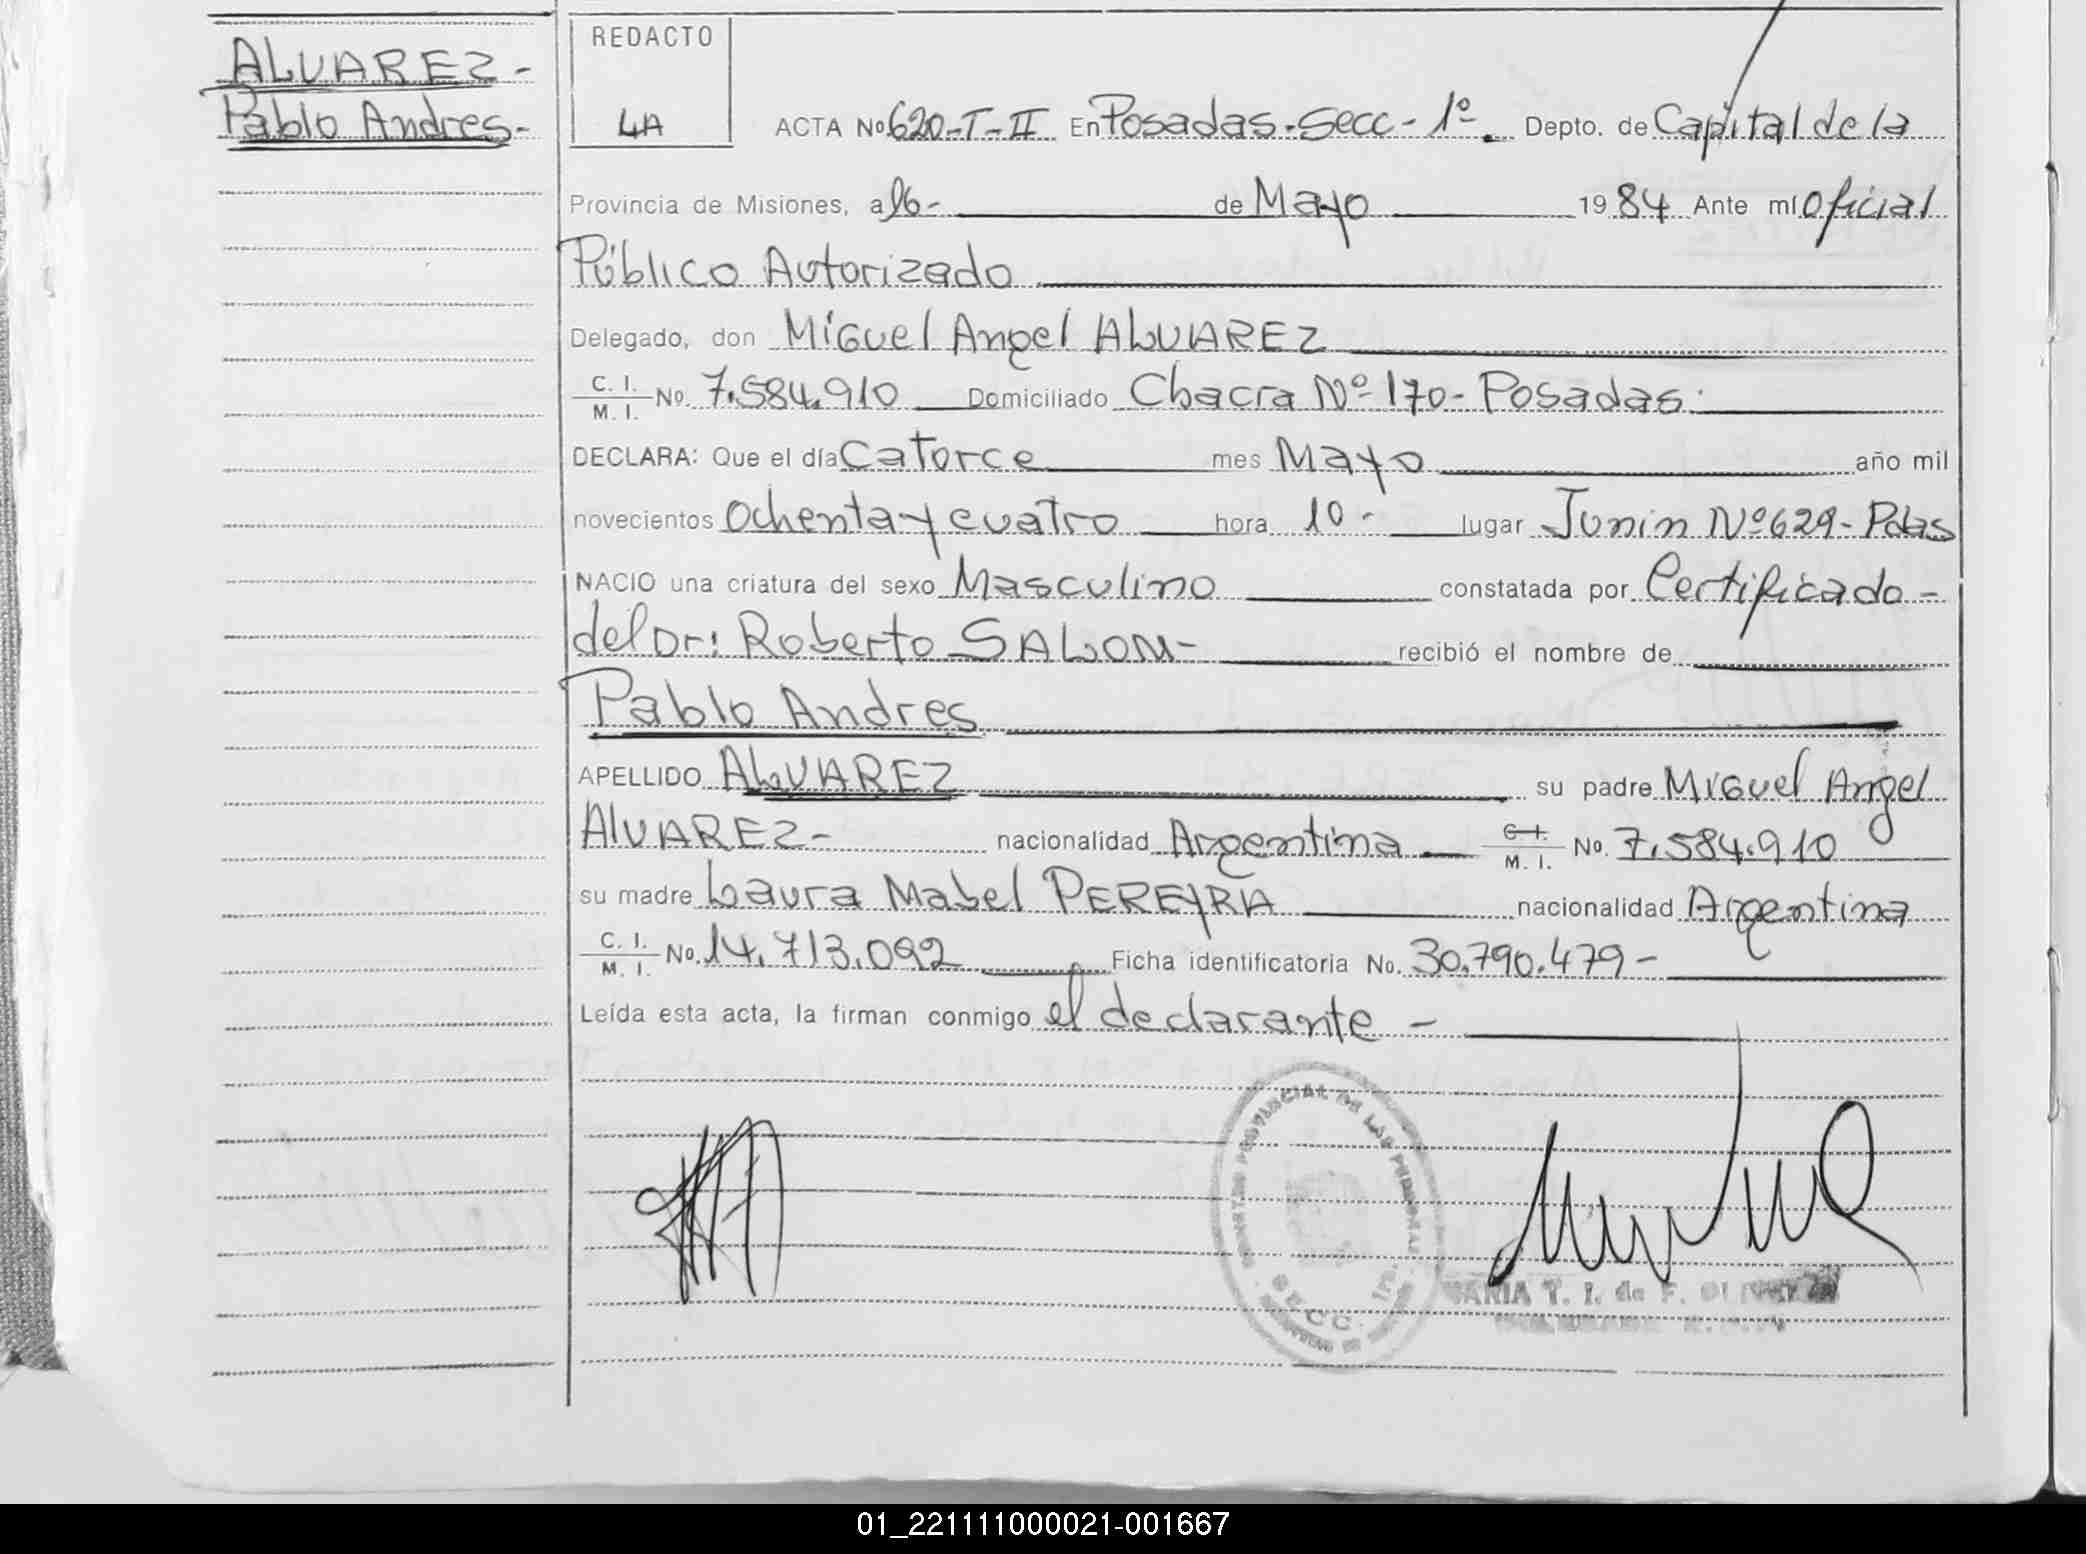 ALVAREZ-
Pablo Andres-
REDACTO
LA
ACTA Nº 620-T-II En Posadas-Secc-1º. Depto. de Capital de la
Provincia de Misiones, a 16- de Mayo 1984 Ante mí Oficial
Público Autorizado
Delegado, don Miguel Angel ALVAREZ
C. I. / M. I. No. 7.584.910 Domiciliado Chacra Nº 170- Posadas.
DECLARA: Que el día Catorce mes Mayo año mil
novecientos Ochenta y cuatro hora 10- lugar Junin Nº 629- Pdas
NACIO una criatura del sexo Masculino constatada por Certificado-
del Dr: Roberto SALOM- recibió el nombre de
Pablo Andres
APELLIDO ALVAREZ su padre Miguel Angel
AlVAREZ- nacionalidad Argentina C. I. / M. I. No. 7.584.910
su madre Laura Mabel PEREYRA nacionalidad Argentina
C. I. / M. I. No. 14.713.092 Ficha identificatoria No. 30.790.479-
Leída esta acta, la firman conmigo el declarante-
PROVINCIAL DE LAS PERSONAS
SECC. 1ª
MARIA T. I. de F.
01_221111000021-001667